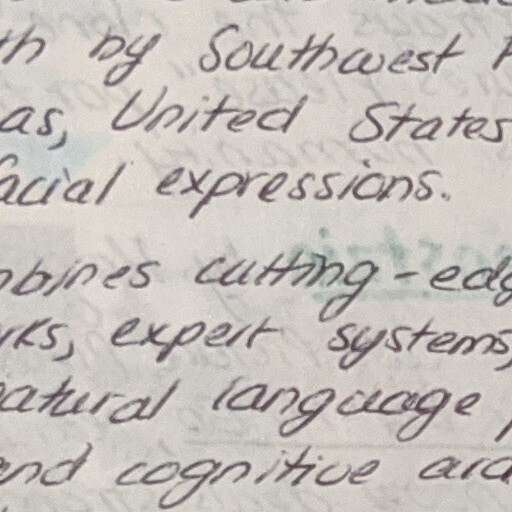 th by Southwest
as, United States
facial expressions.
mbines cutting-edg
rks, expert systems,
natural language
and cognitive arc